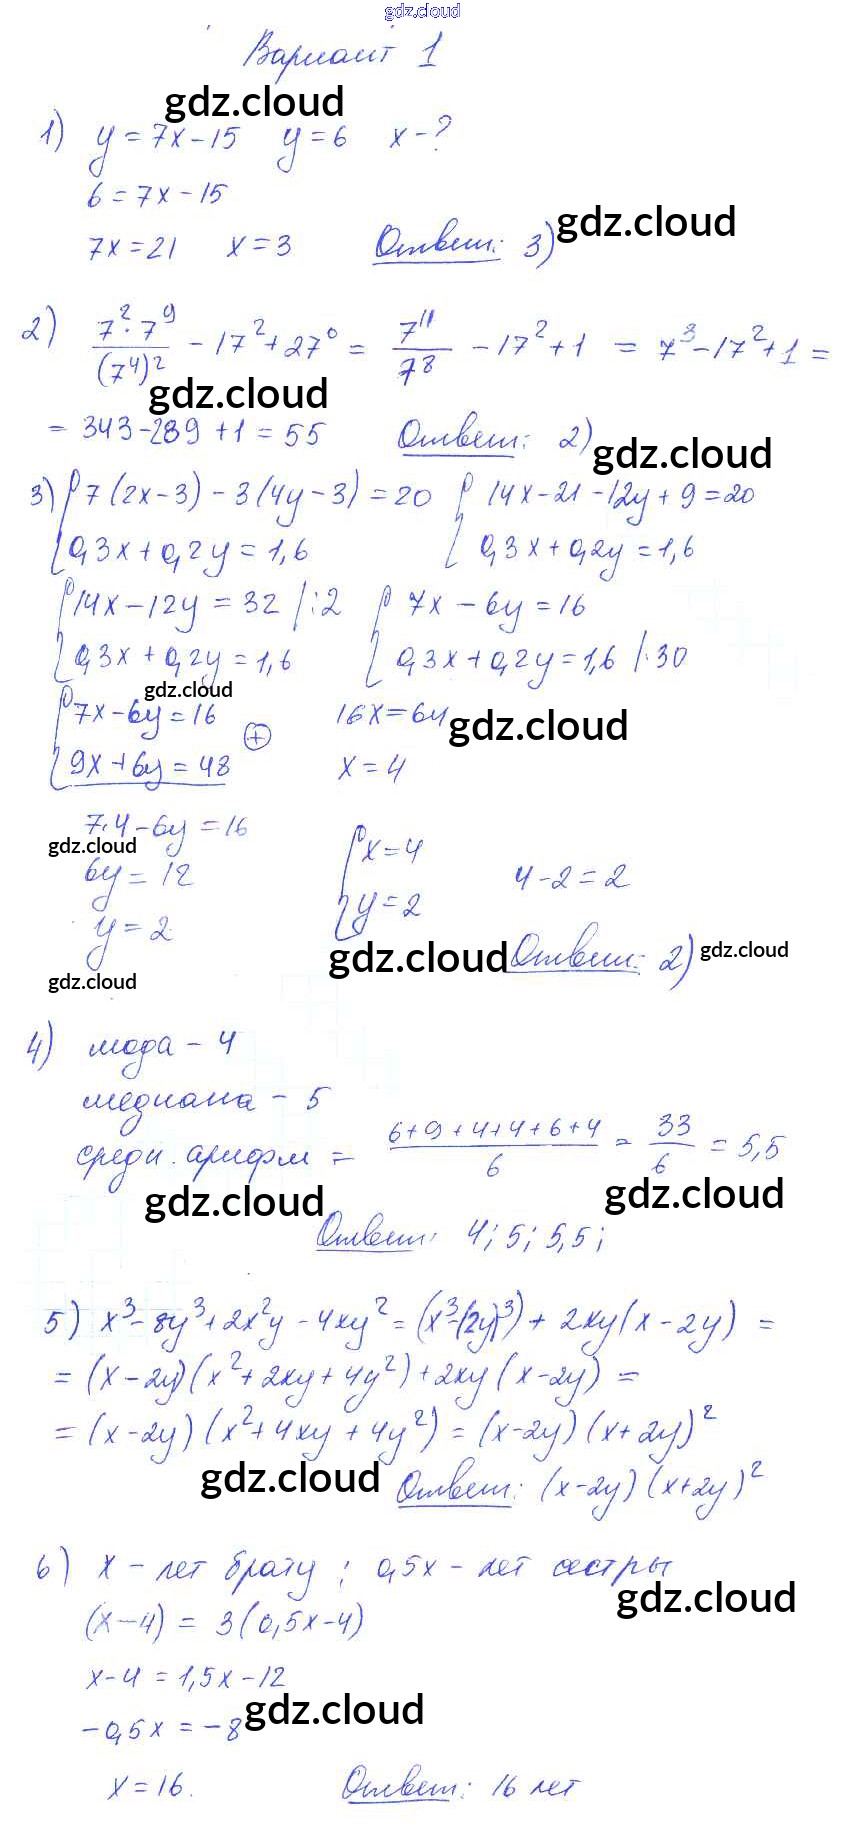 gdz.cloud
Вариант 1
gdz.cloud
1) y = 7x - 15 y = 6 x - ?
6 = 7x - 15
7x = 21 x = 3 Ответ: 3) gdz.cloud
2) 7²·7⁹/(7⁴)² - 17² + 27⁰ = 7¹¹/7⁸ - 17² + 1 = 7³ - 17² + 1 =
gdz.cloud
= 343 - 289 + 1 = 55 Ответ: 2) gdz.cloud
3) { 7(2x - 3) - 3(4y - 3) = 20 { 14x - 21 - 12y + 9 = 20
0,3x + 0,2y = 1,6 0,3x + 0,2y = 1,6
{ 14x - 12y = 32 |:2 { 7x - 6y = 16
0,3x + 0,2y = 1,6 0,3x + 0,2y = 1,6 |·30
gdz.cloud
{ 7x - 6y = 16 ⊕ 16x = 64 gdz.cloud
9x + 6y = 48 x = 4
7·4 - 6y = 16 { x = 4
gdz.cloud
6y = 12 4 - 2 = 2
y = 2 y = 2
gdz.cloud Ответ: 2) gdz.cloud
gdz.cloud
4) мода - 4
медиана - 5
средн. арифм = 6+9+4+4+6+4/6 = 33/6 = 5,5
gdz.cloud gdz.cloud
Ответ: 4; 5; 5,5;
5) x³ - 8y³ + 2x²y - 4xy² = (x³-(2y)³) + 2xy(x - 2y) =
= (x - 2y)(x² + 2xy + 4y²) + 2xy(x - 2y) =
= (x - 2y)(x² + 4xy + 4y²) = (x - 2y)(x + 2y)²
gdz.cloud Ответ: (x - 2y)(x + 2y)²
6) x - лет брату; 0,5x - лет сестры
gdz.cloud
(x - 4) = 3(0,5x - 4)
x - 4 = 1,5x - 12
-0,5x = -8 gdz.cloud
x = 16. Ответ: 16 лет